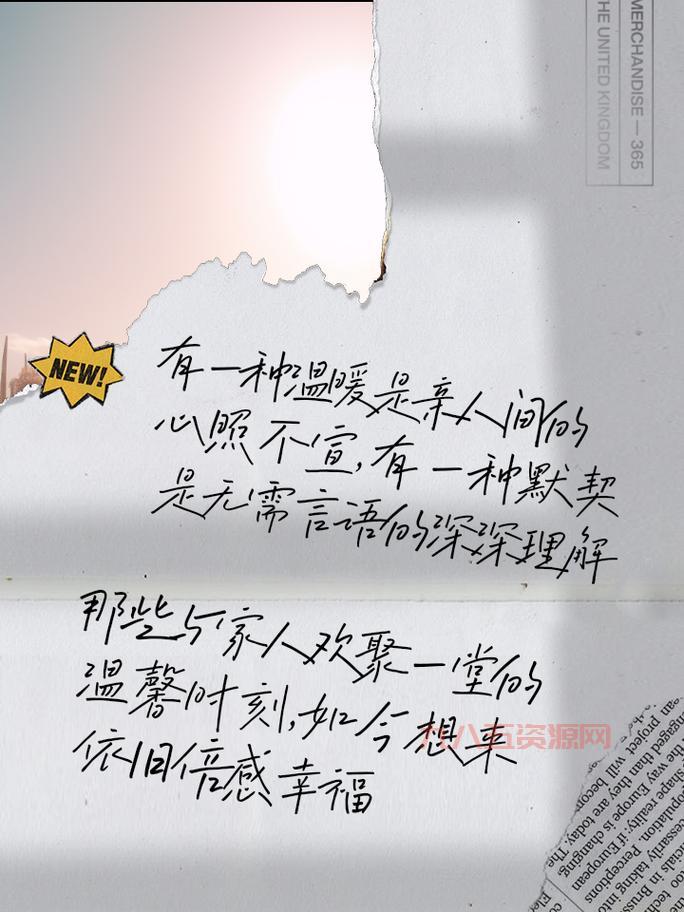 MERCHANDISE — 365
THE UNITED KINGDOM
NEW!
有一种温暖是亲人间的
心照不宣,有一种默契
是无需言语的深深理解
那些与家人欢聚一堂的
温馨时刻,如今想来
依旧倍感幸福
八五资源网
project will be
than they are today. The
the way Europe is changing
shape reality: if European
population. Perceptions
necessarily taking into
in Brus
too tech